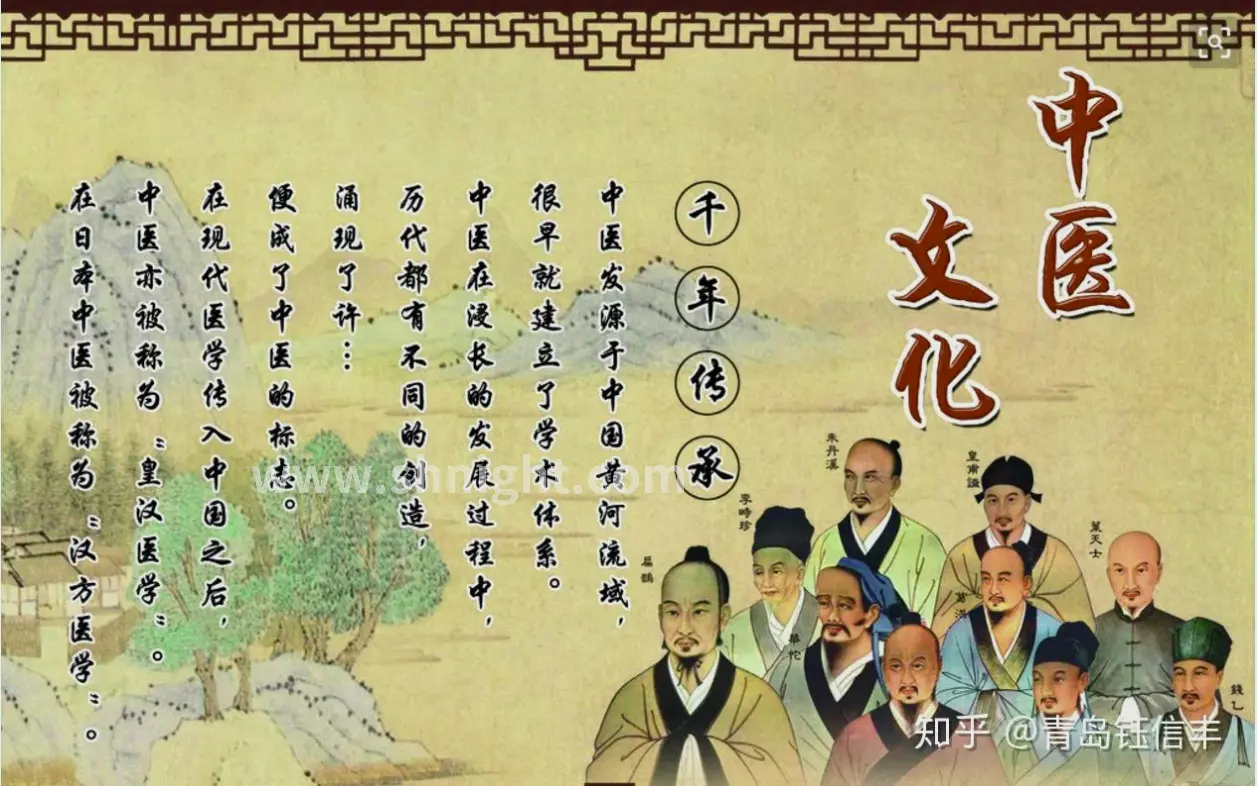 中医
文化
千年传承
中医发源于中国黄河流域，
很早就建立了学术体系。
中医在浸长的发展过程中，
历代都有不同的创造，
涌现了许…
便成了中医的标志。
在现代医学传入中国之后，
中医亦被称为“皇汉医学”。
在日本中医被称为“汉方医学”。
朱丹溪
皇甫謐
李時珍
葉天士
扁鵲
葛洪
華佗
錢乙
www.shnight.com
知乎 @青岛钰信丰